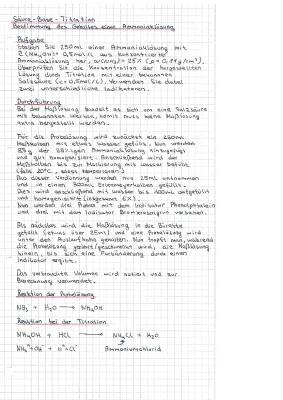 Säure-Base-Titration
Bestimmung des Gehaltes einer Ammoniaklösung
Aufgabe
Stellen Sie 250ml einer Ammoniaklösung mit
c(NH₄OH) = 0,5mol/L aus konzentrierter
Ammoniaklösung her, ω(NH₃) = 25%
Überprüfen Sie die Konzentration der hergestellten
Lösung durch Titration mit einer bekannten
Salzsäure (c=0,5mol/L). Verwenden Sie dabei
zwei unterschiedliche Indikatoren.
Durchführung
Bei der Maßlösung handelt es sich um eine Salzsäure
mit bekanntem Wert, somit muss keine Maßlösung
extra hergestellt werden.
Für die Probelösung wird zunächst ein 250ml
Maßkolben mit etwas Wasser gefüllt. Nun werden
der 25%igen Ammoniaklösung hinzugefügt
und gut homogenisiert. Anschließend wird der
Maßkolben bis zur Markierung mit Wasser befüllt
(Achte 20°C, sonst temperieren.)
Aus dieser Verdünnung werden nun 25ml entnommen
und in einen 300ml Erlenmeyerkolben gefüllt.
Dies wird anschließend mit Wasser bis 100ml aufgefüllt
und homogenisiert (insgesamt 6x).
Nun werden drei Proben mit dem Indikator Phenolphthalein
und drei mit dem Indikator Bromkresolgrün versehen.
Als nächstes wird die Maßlösung in die Bürette
gefüllt (etwas über 25ml) und eine Probelösung wird
unter den Auslaufhahn gehalten. Nun tropft man, während
die Probelösung gerührt/geschwenkt wird, die Maßlösung
hinein, bis sich eine Farbänderung durch einen
Indikator ergibt.
Das verbrauchte Volumen wird notiert und zur
Berechnung verwendet.
Reaktion der Probelösung
NH₃ + H₂O → NH₄OH
Reaktion bei der Titration
NH₄OH + HCl → NH₄Cl + H₂O
NH₄⁺ + OH⁻ + H⁺ + Cl⁻ Ammoniumchlorid